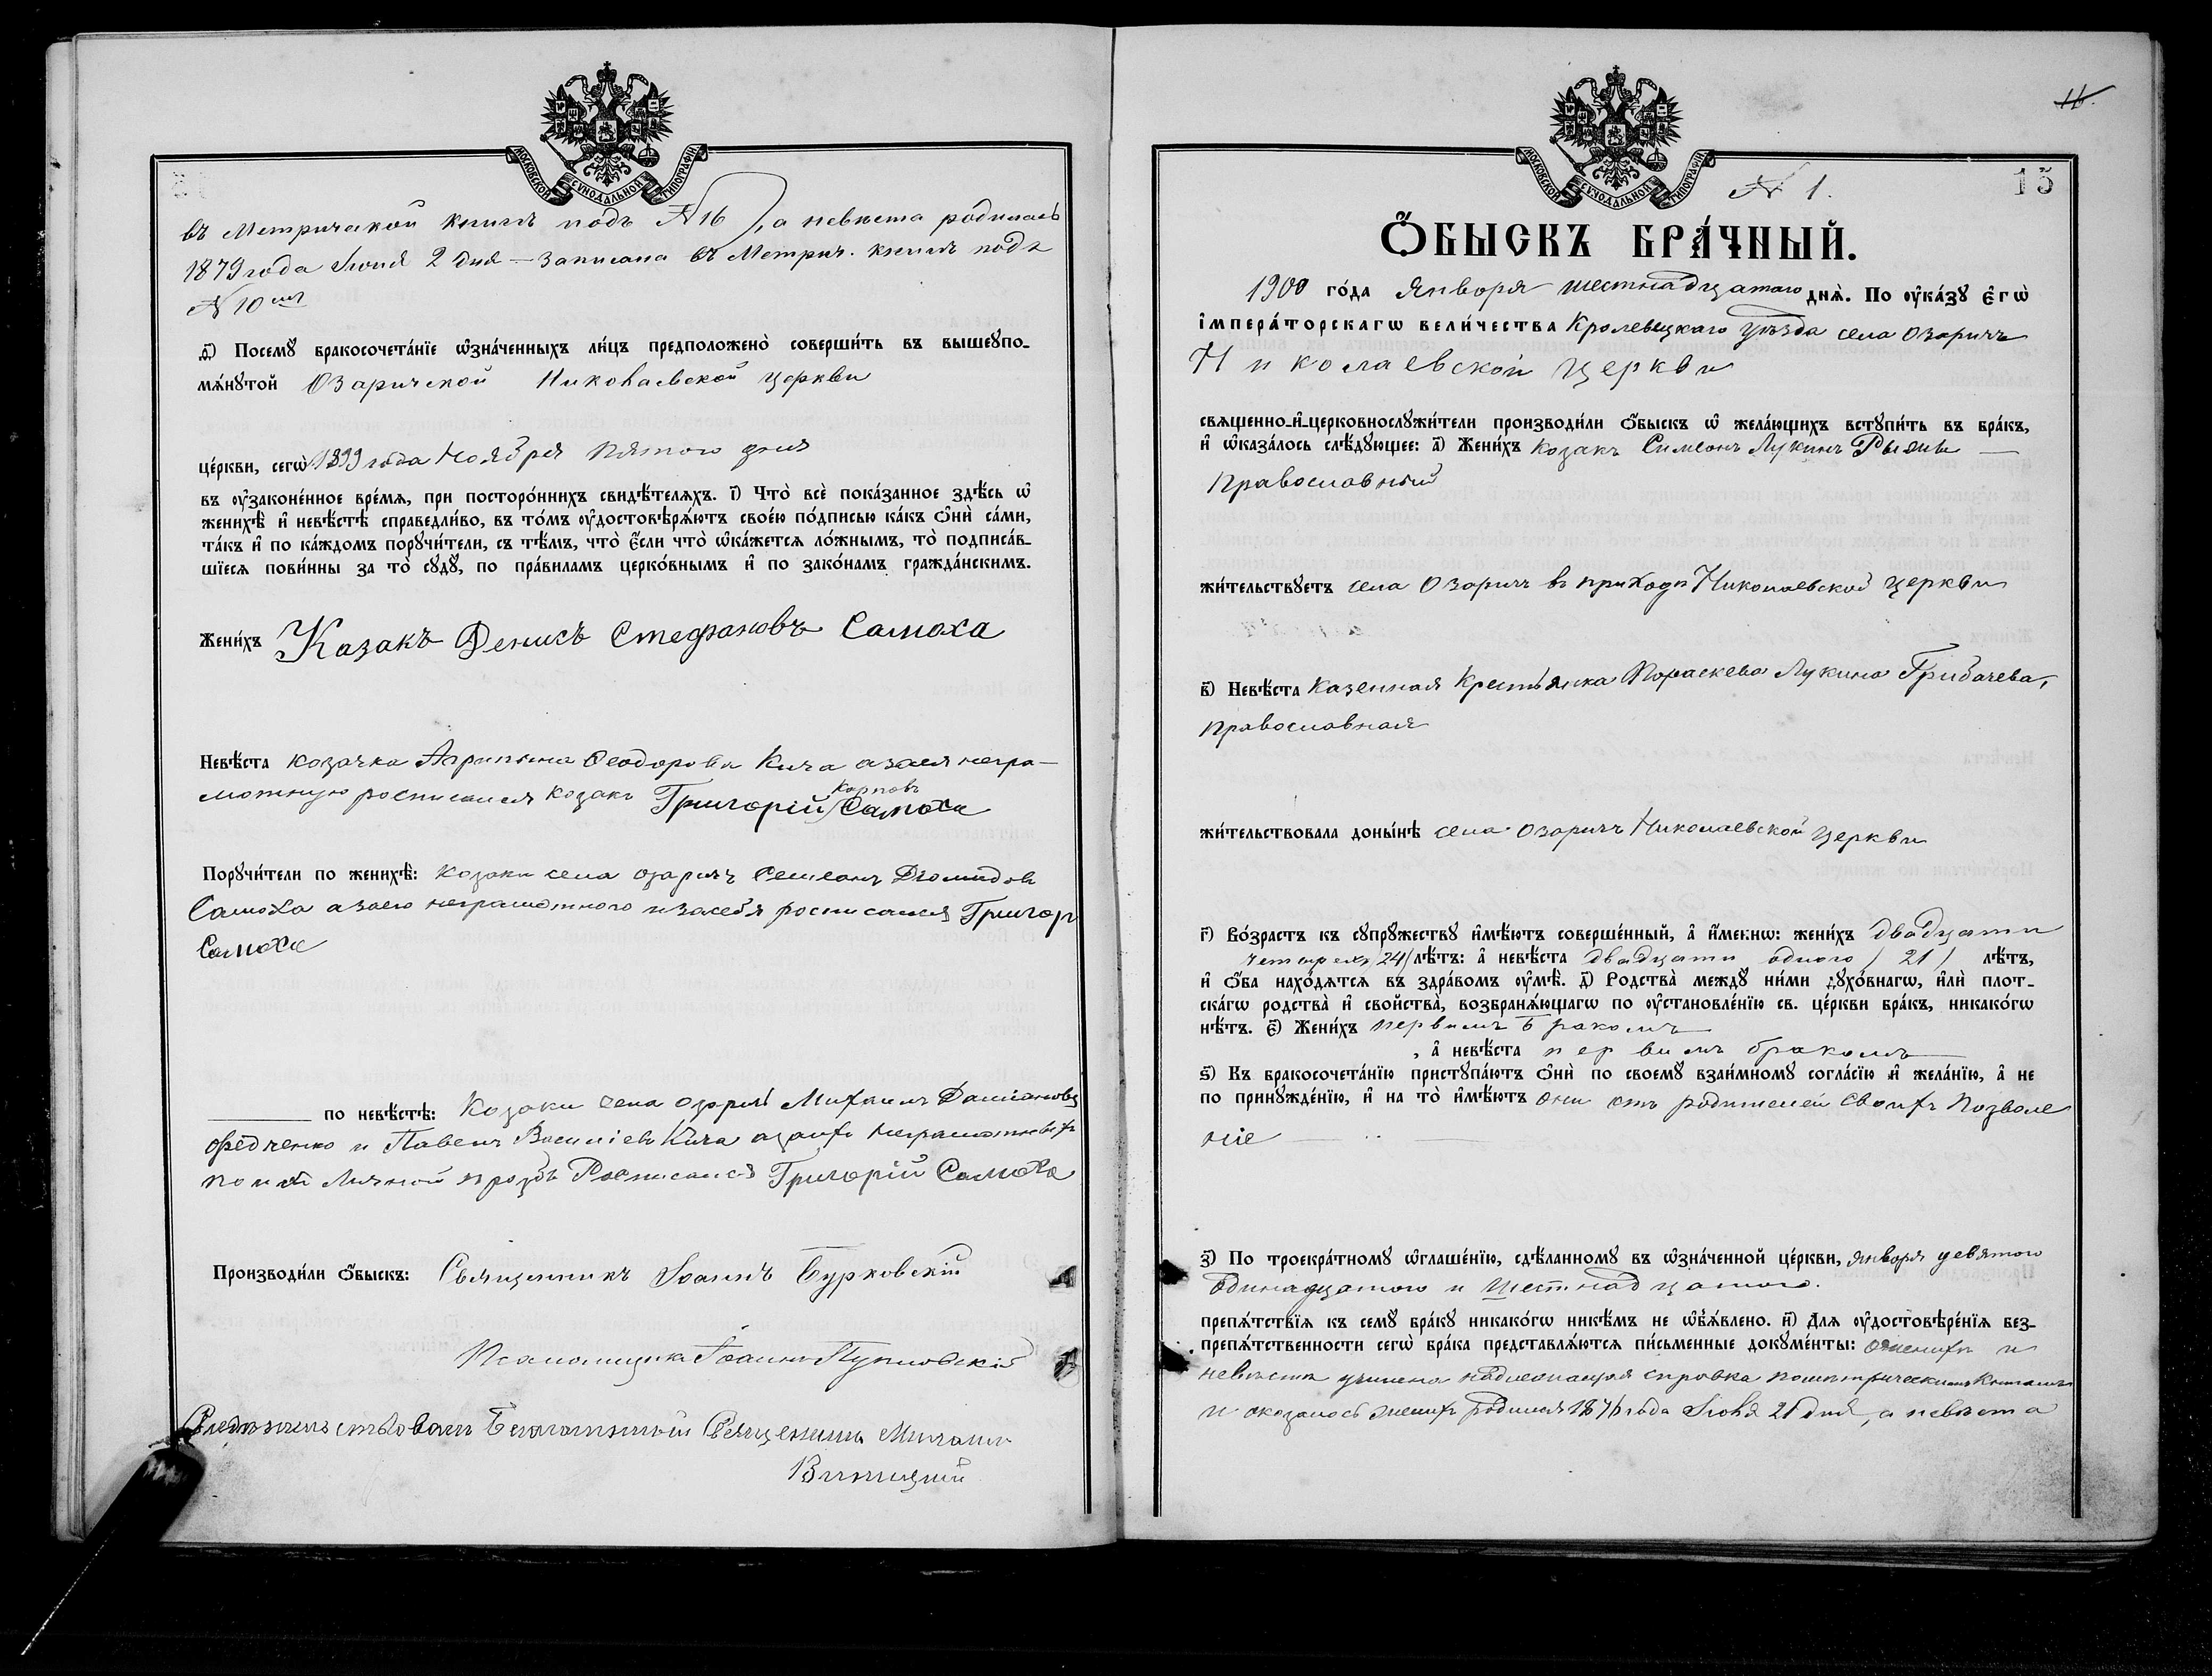 МОСКОВСКОЙ СУНОДАЛЬНОЙ ТИПОГРАФІИ
въ Метрической книгѣ подъ №16, а невѣста родилась
1879 года Іюня 2 дня — записана въ Метрич. книгѣ подъ
№ 10мъ
д҃) Посемꙋ бракосочета́нїе ѡ҆зна́ченныхъ ли́цъ предположено̀ соверши́ть въ вышеꙋпо-
мѧ́нꙋтой Озаричской Николаевской церкви
це́ркви, сегѡ̀ 1899 года Ноября пятого дня
въ ᲂу҆законе́нное вре́мѧ, при посторо́ннихъ свидѣ́телѧхъ. і҃) Что̀ всѐ пока́занное здѣ́сь ѡ҆
женихѣ̀ и҆ невѣ́стѣ справедли́во, въ то́мъ ᲂу҆достовѣрѧ́ютъ свое́ю по́дписью ка́къ ѻ҆нѝ са́ми,
та́къ и҆ по ка́ждомъ порꙋчи́тели, съ тѣ́мъ, что̀ є҆́сли что̀ ѡ҆ка́жетсѧ ло́жнымъ, то̀ подписа́в-
шїесѧ пови́нны за то̀ сꙋдꙋ̀, по пра́виламъ церко́внымъ и҆ по зако́намъ гражда́нскимъ.
Жени́хъ Казакъ Денисъ Стефановъ Самоха
Невѣ́ста козачка Агрипина Феодорова Кича азаея негра-
мотную росписался козакъ Григорій Карповъ Самоха
Порꙋчи́тели по женихѣ̀: козаки села озаричъ Семеонъ Диомидовъ
Самоха азаего неграмотного изасебя росписался Григор
Самоха
по невѣ́стѣ: Козаки села озаричъ Михаилъ Даміановъ
Федченко и Павелъ Василіевъ Кича азаихъ неграмотныхъ
по ихъ личной прозбѣ Росписался Григорій Самоха
Производи́ли ѻ҆́быскъ: Священникъ Іоаннъ Бурковскій
Псаломщикъ Іоаннъ
Священникъ
№ 1.
15
Ѻ҆́БЫСКЪ БРА́ЧНЫЙ.
1900 го́да Января шестнадцатаго днѧ̀. По ᲂу҆ка́зꙋ є҆гѡ̀
і҆мпера́торскагѡ вели́чества Кролевецкаго уѣзда села Озаричъ
Николаевской церкви
свѧщенно-и҆-церковнослꙋжи́тели производи́ли ѻ҆́быскъ ѡ҆ жела́ющихъ встꙋпи́ть въ бра́къ,
и҆ ѡ҆каза́лось слѣ́дꙋющее: а҃) Жени́хъ Козакъ Симеонъ Лукинъ —
православный
жи́тельствꙋетъ села Озаричъ въ приходѣ Николаевской церкви
в҃) Невѣ́ста Казенная Крестьянка Параскева Лукина Грибачева,
православная
жи́тельствовала доны́нѣ села Озаричъ Николаевской церкви
г҃) Во́зрастъ къ сꙋпрꙋ́жествꙋ и҆мѣ́ютъ соверше́нный, а҆ и҆́менно: жени́хъ двадцати
четырехъ /24/ лѣ́тъ: а҆ невѣ́ста двадцати одного / 21 / лѣ́тъ,
и҆ ѻ҆́ба нахо́дѧтсѧ въ здра́вомъ ᲂу҆мѣ̀. д҃) Родства̀ междꙋ̀ ни́ми дꙋхо́внагѡ, и҆лѝ плот-
ска́гѡ родства̀ и҆ сво́йства, возбранѧ́ющагѡ по ᲂу҆становле́нїю св. це́ркви бра́къ, никако́гѡ
нѣ́тъ. є҃) Жени́хъ первымъ бракомъ
, а҆ невѣ́ста первымъ бракомъ
ѕ҃) Къ бракосочета́нїю пристꙋпа́ютъ ѻ҆нѝ по своемꙋ̀ взаи́мномꙋ согла́сїю и҆ жела́нїю, а҆ не
по принꙋжде́нїю, и҆ на то̀ и҆мѣ́ютъ они отъ родителей своихъ позволе
ніе
з҃) По троекра́тномꙋ ѡ҆глаше́нїю, сдѣ́ланномꙋ въ ѡ҆зна́ченной це́ркви, января девятого
одинадцатого и шестнадцатого.
препѧ́тствїѧ къ семꙋ̀ бра́кꙋ никако́гѡ никѣ́мъ не ѡ҆б̾ѧ́влено. и҃) Длѧ ᲂу҆достовѣре́нїѧ без-
препѧ́тственности сегѡ̀ бра́ка представлѧ́ютсѧ пи́сьменные докꙋме́нты: Оженихѣ и
невѣстѣ учинена надлежащая справка пометрическимъ Книгамъ
и оказалось женихъ родился 1876 года Іюня 21 дня, а невѣста
МОСКОВСКОЙ СУНОДАЛЬНОЙ ТИПОГРАФІИ